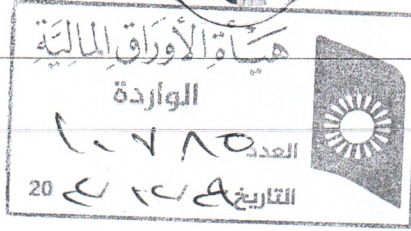 هَيْأَةِ الأَوْرَاقِ المَالِيَّةِ
الواردة
العدد ١٠٧٨٥
التاريخ 20